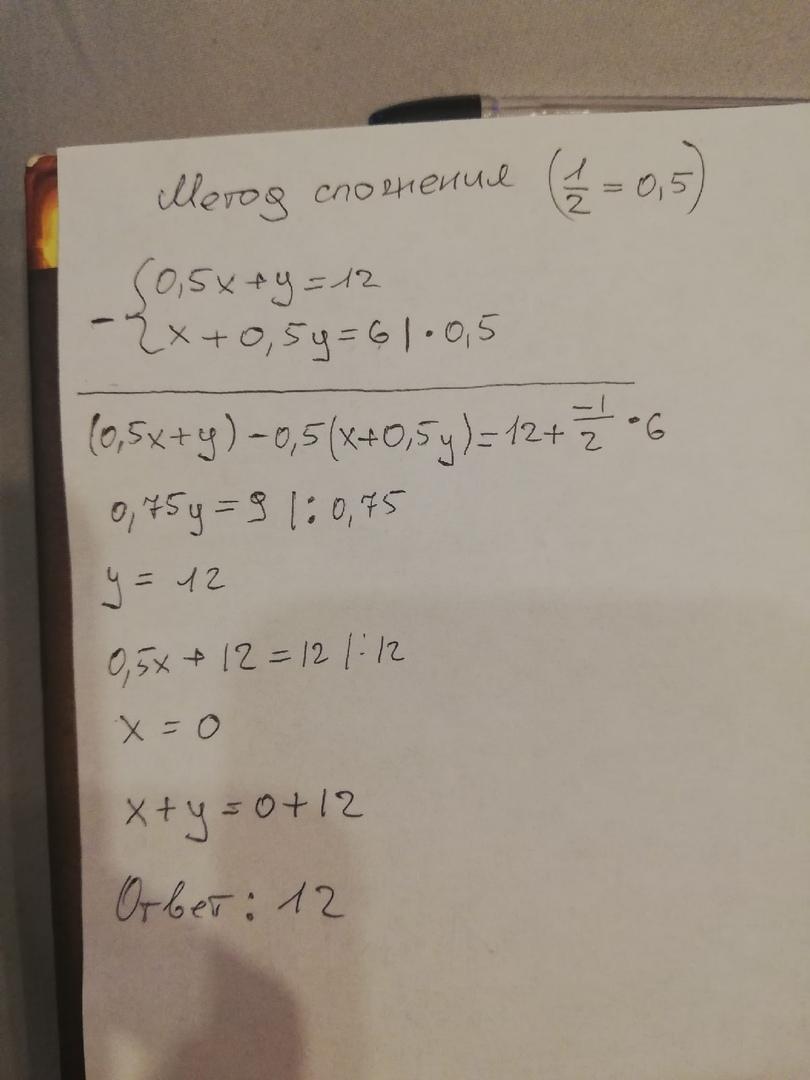 Метод сложения (1/2 = 0,5)
- { 0,5x + y = 12
x + 0,5y = 6 | · 0,5
(0,5x + y) - 0,5(x + 0,5y) = 12 + -1/2 · 6
0,75y = 9 | : 0,75
y = 12
0,5x + 12 = 12 | : 12
x = 0
x + y = 0 + 12
Ответ: 12